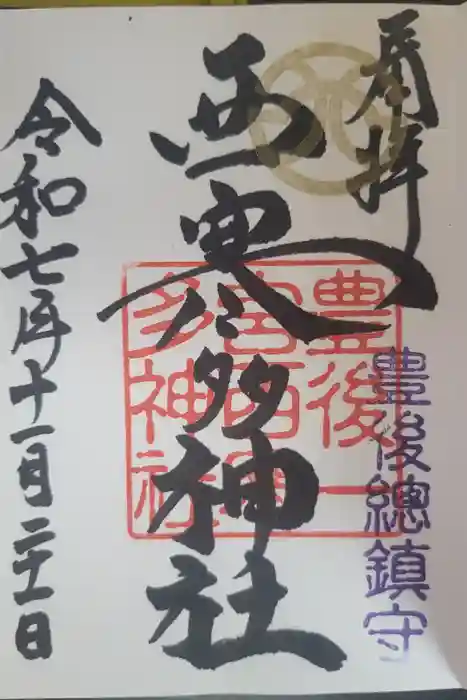 奉拝
豊後總鎮守
西寒多神社
豊後一
宮西寒
多神社
令和七年十一月二十一日